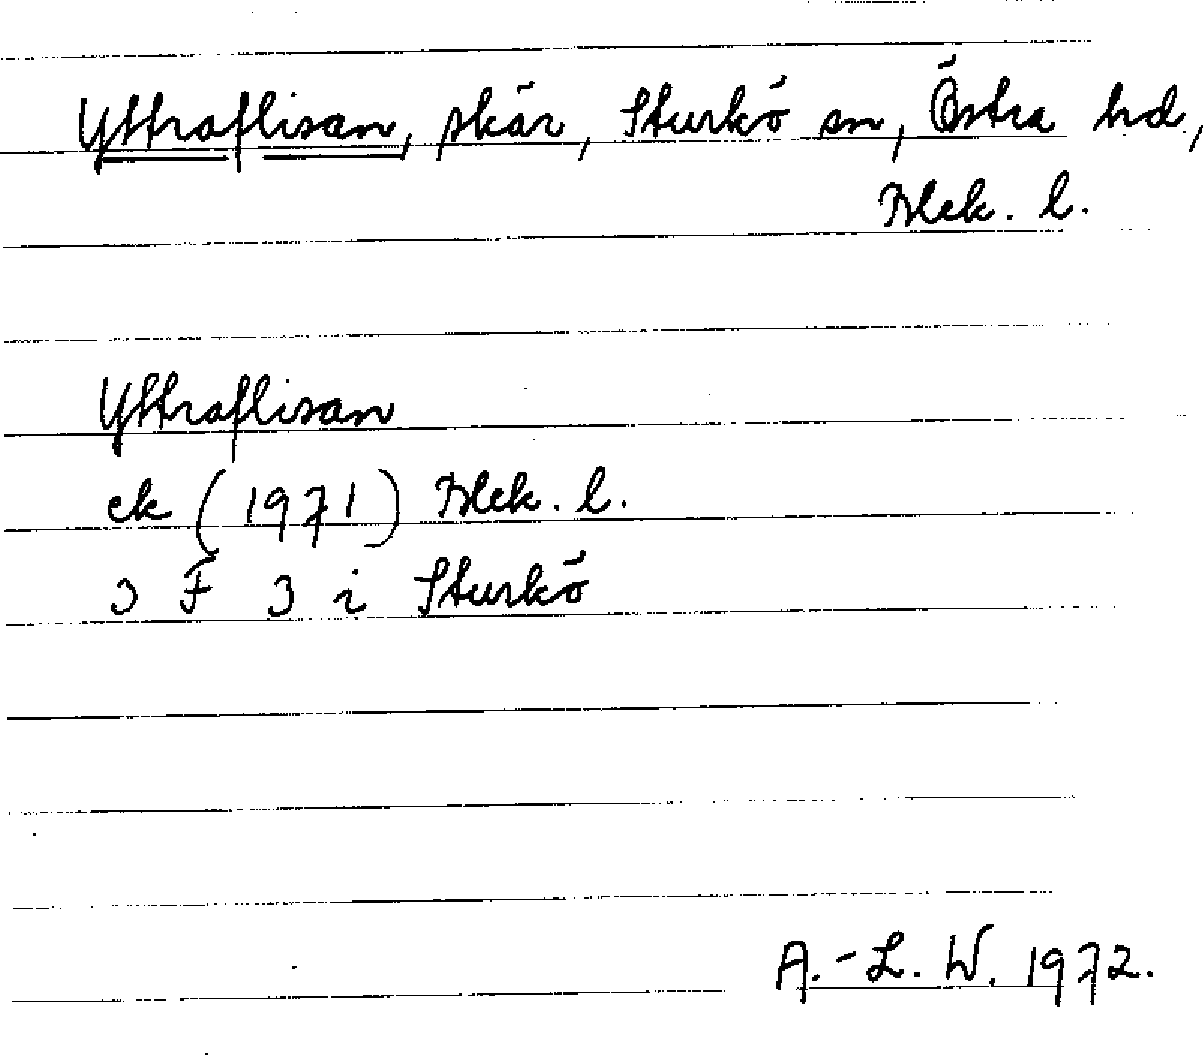 Yttraflisan, skär, Sturkö sn, Östra hd,
Blek. l.
Yttraflisan
ek (1971) Blek. l.
3 F 3 i Sturkö
A.-L. W. 1972.